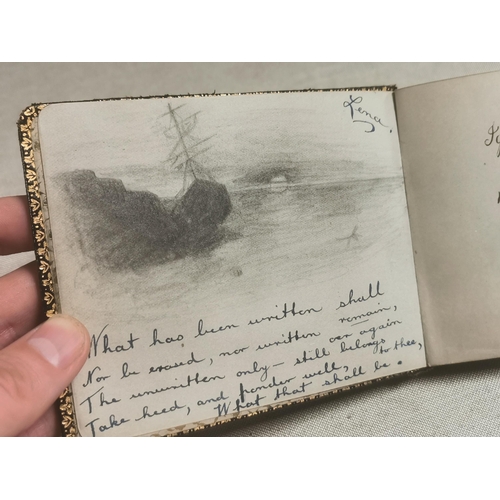 Lena.
What has been written shall
Nor be erased, nor written remain,
The unwritten only – still belongs to thee,
Take heed, and ponder well,
What that shall be.
over again